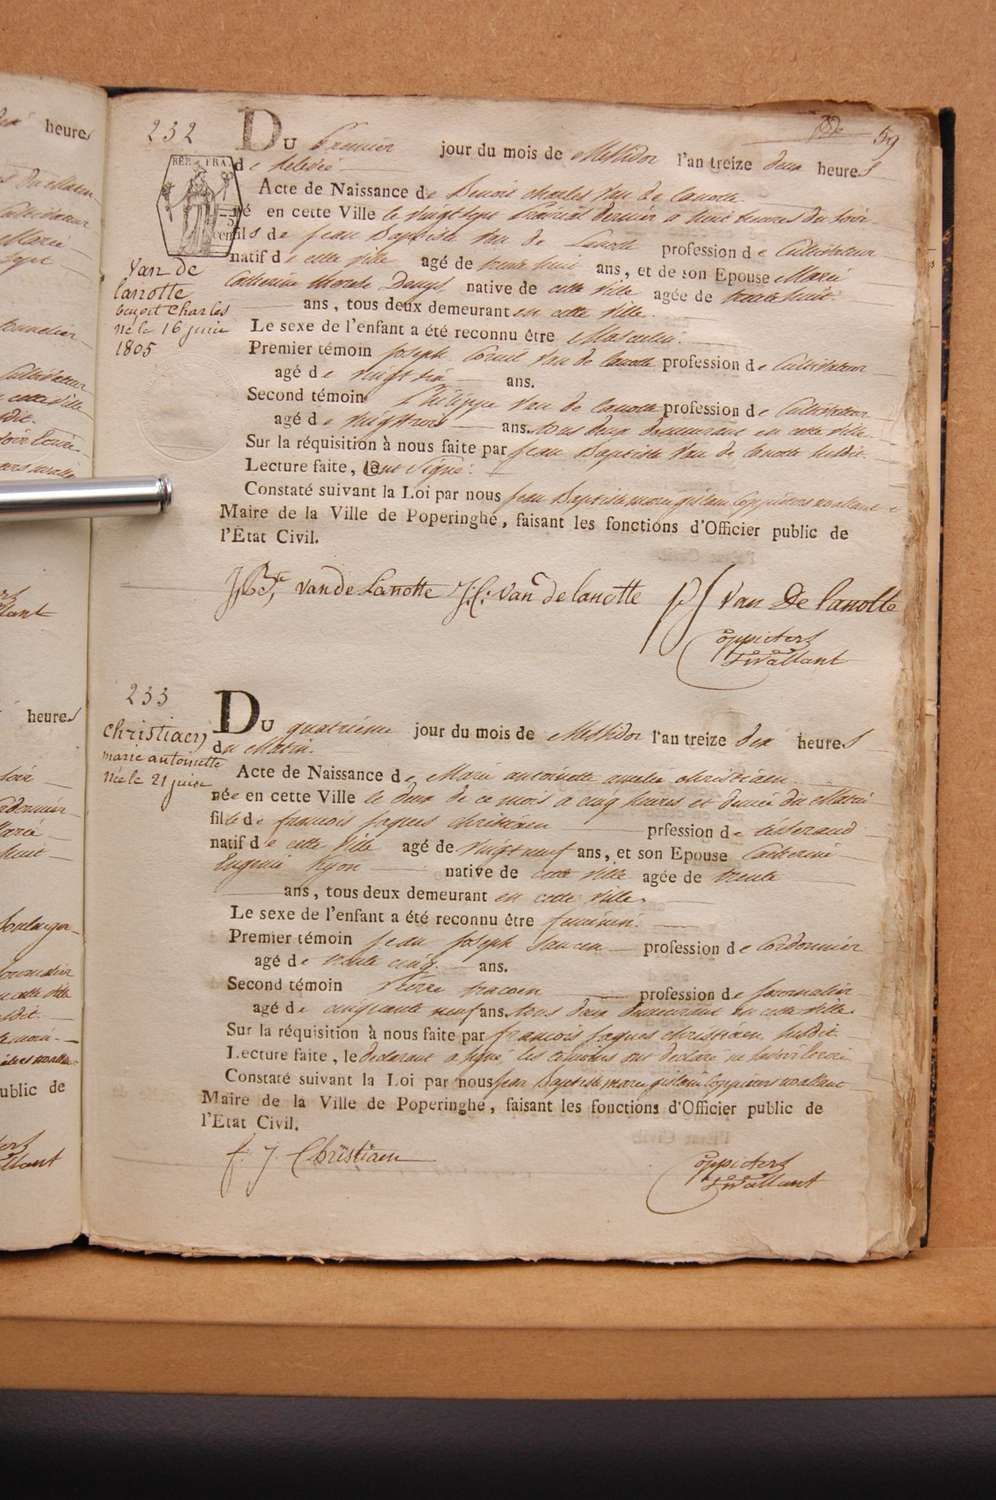 232
59
Du Premier jour du mois de Messidor l'an treize deux heures
de relevée
REP. FRA.
Acte de Naissance de Benoit Charles Van de Lanotte
né en cette Ville le vingt sept Prairial dernier a huit heures du soir
fils de Jean Baptiste Van de Lanotte profession de Cultivateur
natif de cette ville agé de trente huit ans, et de son Epouse Marie
Catherine native de cette ville agée de trente huit
ans, tous deux demeurant en cette ville.
Van de
lanotte
benoit Charles
né le 16 juin
1805
Le sexe de l'enfant a été reconnu être Masculin.
Premier témoin Joseph Van de Lanotte profession de Cultivateur
agé de vingt six ans.
Second témoin Philippe Van de Lanotte profession de Cultivateur
agé de ans. tous deux demeurant en cette ville.
Sur la réquisition à nous faite par Jean Baptiste Van de Lanotte susdit.
Lecture faite, ont signé.
Constaté suivant la Loi par nous Jean Baptiste Marie Coppieters wallant
Maire de la Ville de Poperinghe, faisant les fonctions d'Officier public de
l'Etat Civil.
J. Bte. van de Lanotte J. C. van de lanotte pf van De Lanotte
Coppieters
Twallant
233
Christiaen
marie antoinette
née le 21 juin
Du quatrième jour du mois de Messidor l'an treize dix heures
du Matin.
Acte de Naissance de Marie antoinette amelie christiaen
née en cette Ville le deux de ce mois a cinq heures et demie du Matin
fille de francois Jaques christiaen prfession de tisserand
natif de cette ville agé de vingt neuf ans, et son Epouse Catherine
Eugenie native de cette ville agée de trente
ans, tous deux demeurant en cette ville.
Le sexe de l'enfant a été reconnu être feminin.
Premier témoin Jean Joseph profession de Cordonnier
agé de trente cinq ans.
Second témoin Pierre profession de journalier
agé de cinquante neuf ans. tous deux demeurant en cette ville.
Sur la réquisition à nous faite par francois Jaques christiaen susdit
Lecture faite, le declarant a signé les temoins ont declaré ne savoir ecrire
Constaté suivant la Loi par nous Jean Baptiste Marie Coppieters wallant
Maire de la Ville de Poperinghe, faisant les fonctions d'Officier public de
l'Etat Civil.
f. J. Christiaen
Coppieters
Twallant